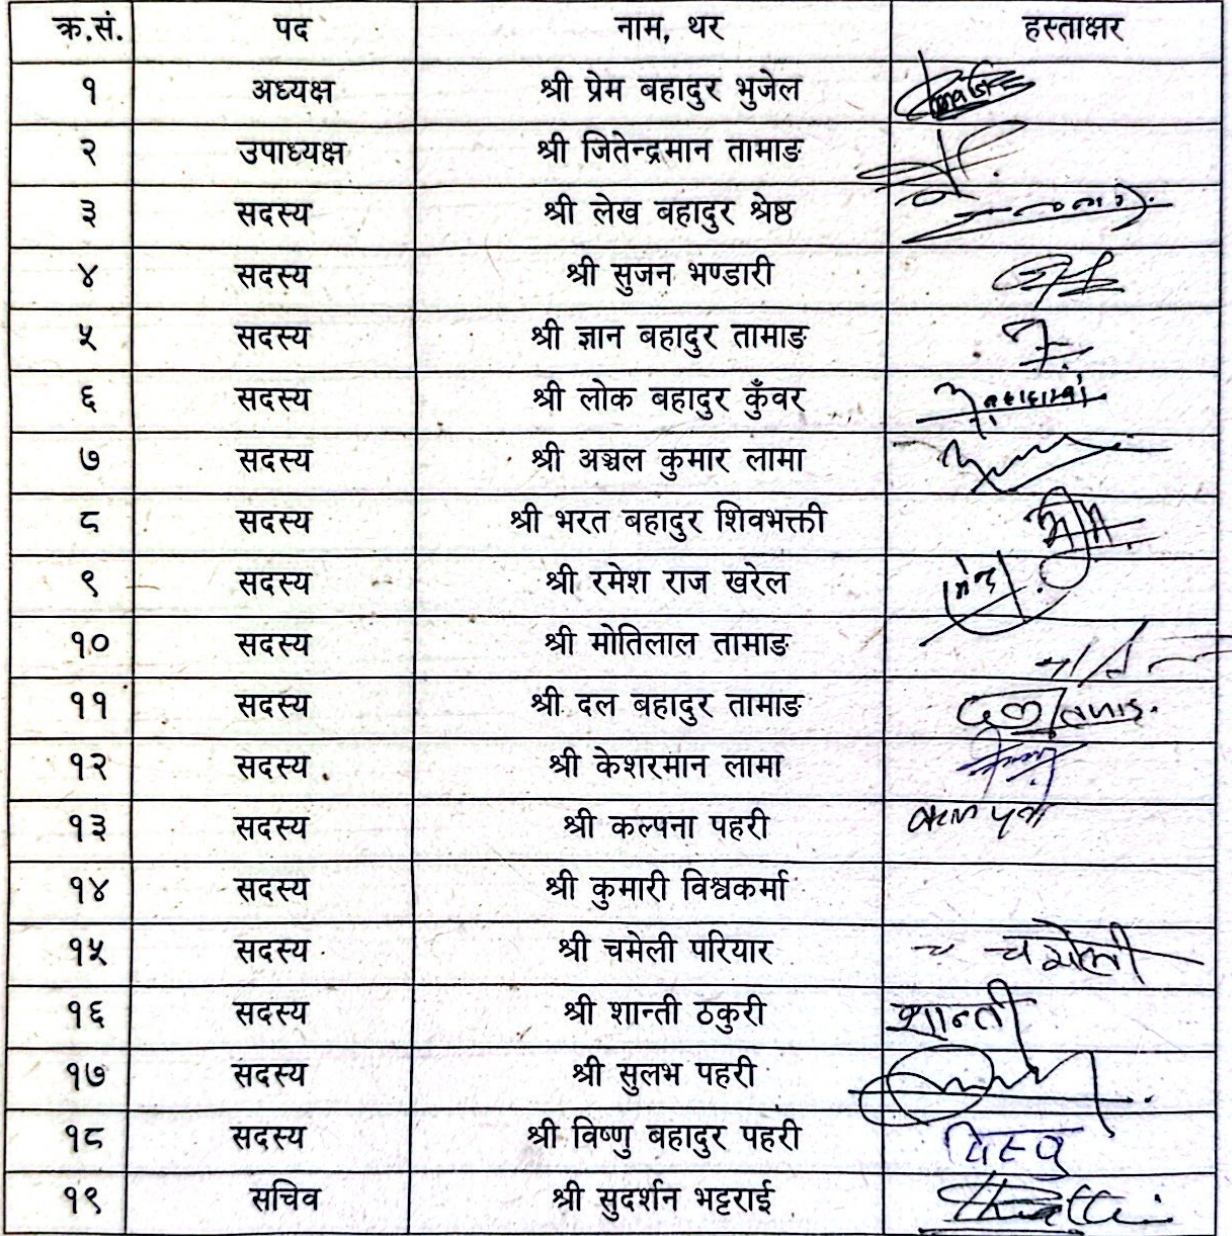 क्र.सं. पद नाम, थर हस्ताक्षर
१ अध्यक्ष श्री प्रेम बहादुर भुजेल
२ उपाध्यक्ष श्री जितेन्द्रमान तामाङ
३ सदस्य श्री लेख बहादुर श्रेष्ठ
४ सदस्य श्री सुजन भण्डारी
५ सदस्य श्री ज्ञान बहादुर तामाङ
६ सदस्य श्री लोक बहादुर कुँवर
७ सदस्य श्री अञ्चल कुमार लामा
८ सदस्य श्री भरत बहादुर शिवभक्ती
९ सदस्य श्री रमेश राज खरेल
१० सदस्य श्री मोतिलाल तामाङ
११ सदस्य श्री दल बहादुर तामाङ
१२ सदस्य श्री केशरमान लामा
१३ सदस्य श्री कल्पना पहरी
१४ सदस्य श्री कुमारी विश्वकर्मा
१५ सदस्य श्री चमेली परियार चमेली
१६ सदस्य श्री शान्ती ठकुरी शान्ती
१७ सदस्य श्री सुलभ पहरी
१८ सदस्य श्री विष्णु बहादुर पहरी
१९ सचिव श्री सुदर्शन भट्टराई